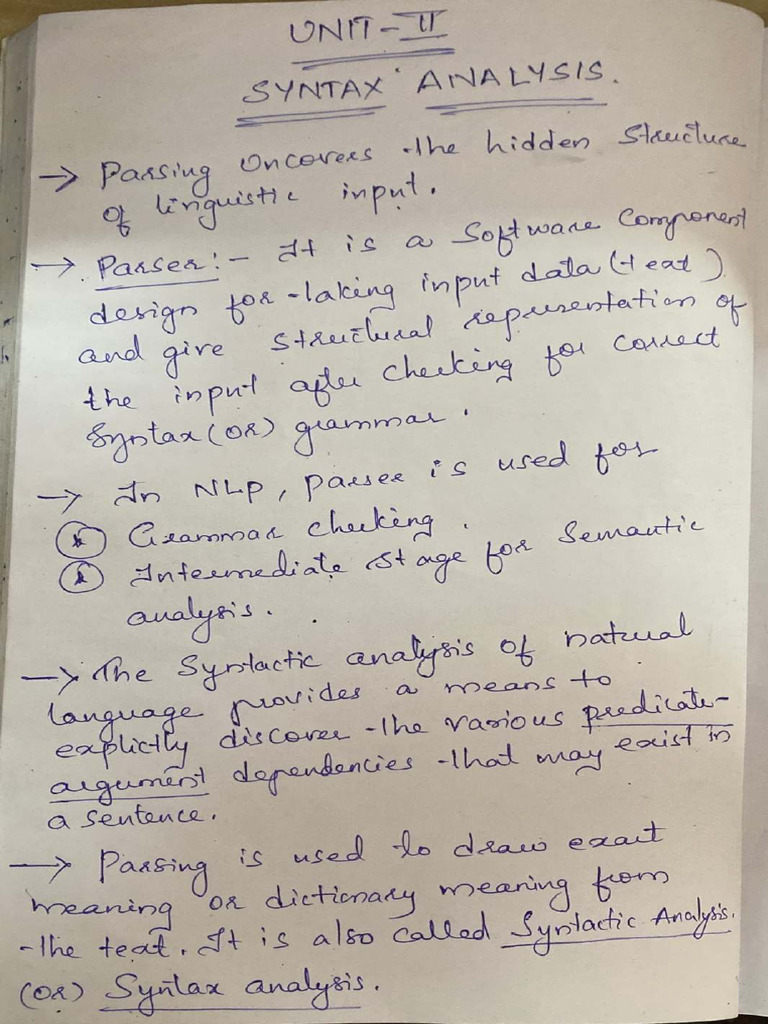 UNIT-II
SYNTAX ANALYSIS.
→ Parsing Uncovers the hidden Structure
of linguistic input.
→ Parser:- It is a Software Component
design for taking input data (text)
and give structural representation of
the input after checking for correct
Syntax (or) grammar.
→ In NLP, parser is used for
* Grammar checking.
* Intermediate stage for Semantic
analysis.
→ The Syntactic analysis of natural
language provides a means to
explictly discover the various predicate-
argument dependencies that may exist in
a sentence.
→ Parsing is used to draw exact
meaning or dictionary meaning from
the text. It is also called Syntactic Analysis.
(or) Syntax analysis.